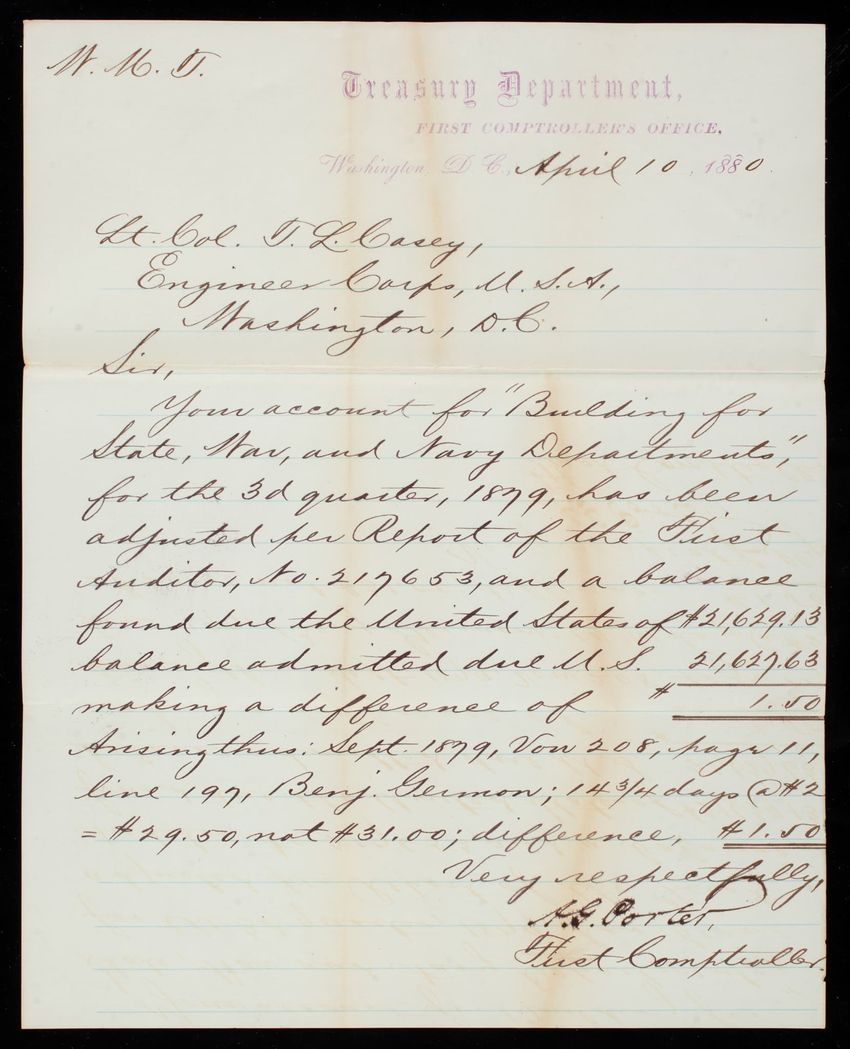 W. M. T.
Treasury Department,
FIRST COMPTROLLER'S OFFICE,
Washington, D. C., April 10, 1880.
Lt. Col. T. L. Casey,
Engineer Corps, U. S. A.,
Washington, D.C.
Sir,
Your account for "Building for
State, War, and Navy Departments",
for the 3d quarter, 1879, has been
adjusted per Report of the First
Auditor, No. 217653, and a balance
found due the United States of $21,629.13
balance admitted due U.S. 21,627.63
making a difference of $ 1.50
Arising thus: Sept 1879, Vou 208, page 11,
line 197, Benj. Germon; 14 3/4 days @ $2
= $29.50, not $31.00; difference, $1.50
Very respectfully,
A.G. Porter,
First Comptroller.